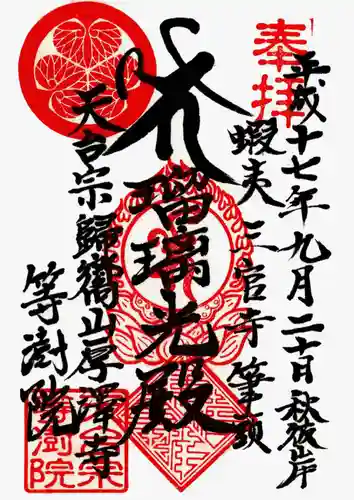 奉拝
平成十七年九月二十日 秋彼岸
蝦夷三官寺 筆頭
瑠璃光殿
天台宗歸嚮山厚澤寺
等澍院